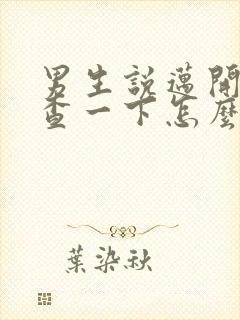 男生說邁開
查一下怎麼
葉染秋